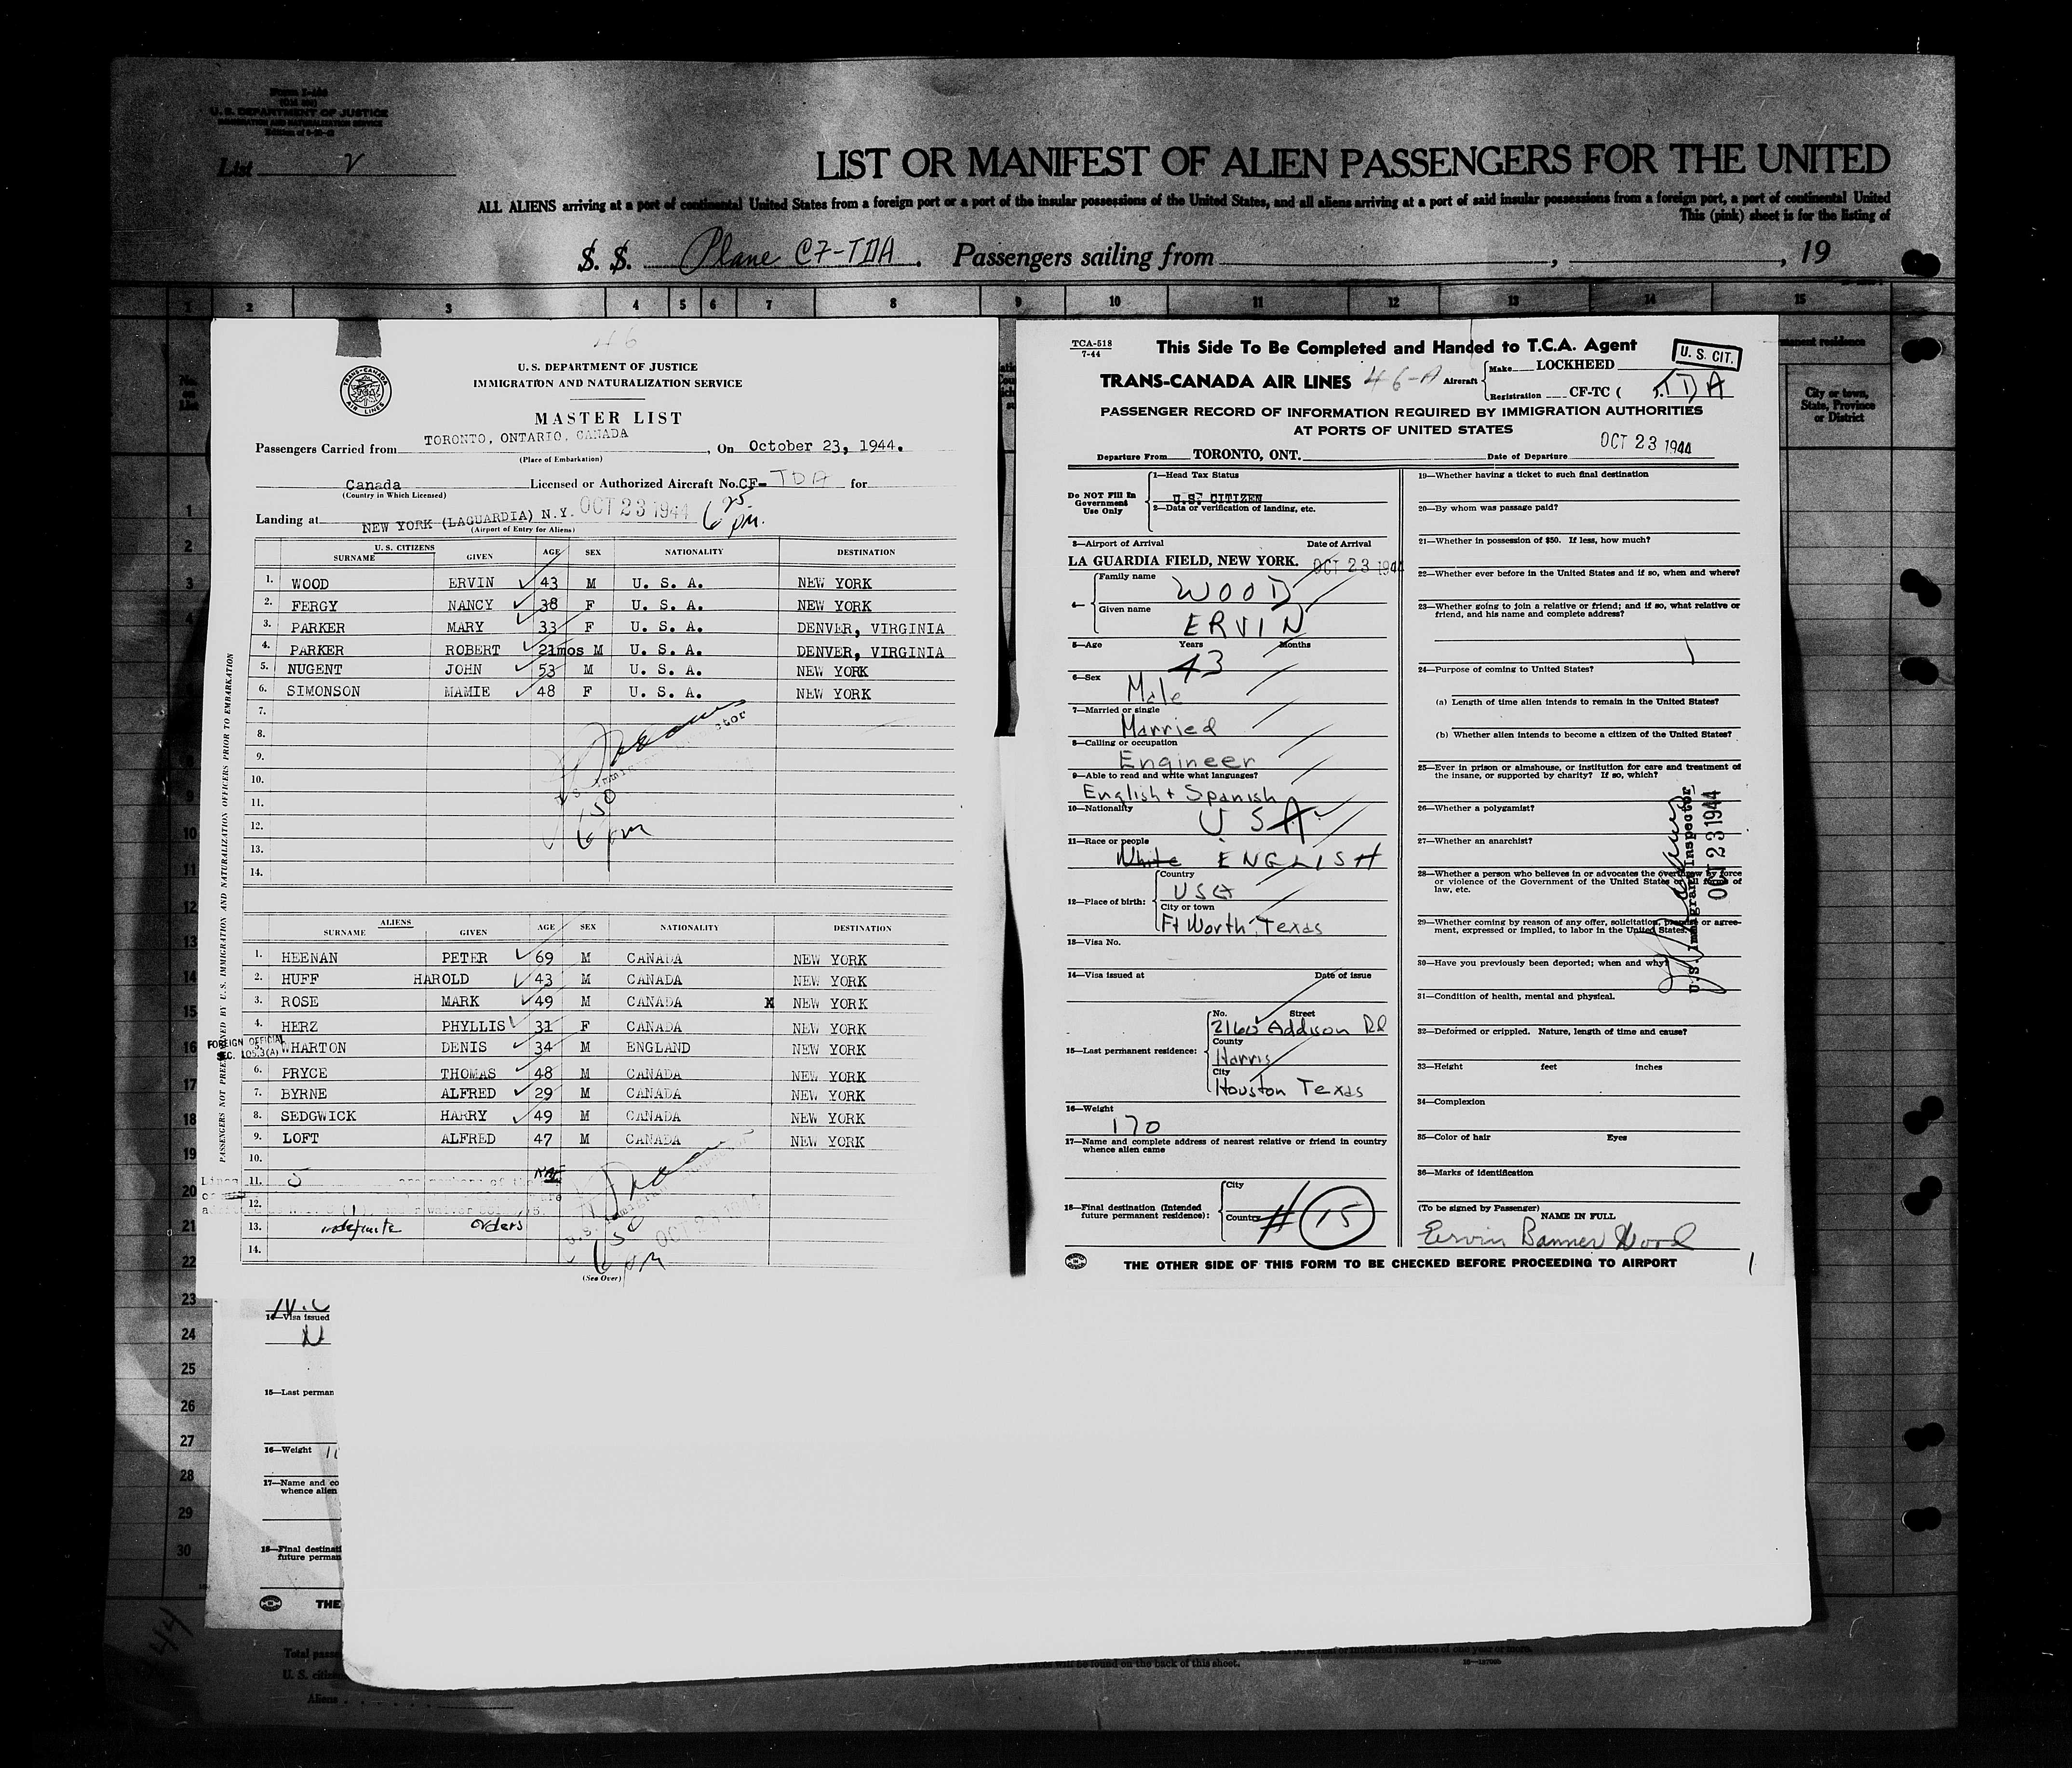 Form I-466
U. S. DEPARTMENT OF JUSTICE
IMMIGRATION AND NATURALIZATION SERVICE
List V
LIST OR MANIFEST OF ALIEN PASSENGERS FOR THE UNITED
ALL ALIENS arriving at a port of continental United States from a foreign port or a port of the insular possessions of the United States, and all aliens arriving at a port of said insular possessions from a foreign port, a port of continental United
This (pink) sheet is for the listing of
S. S. Plane C7-TDA . Passengers sailing from , , 19
1 2 3 4 5 6 7 8 9 10 11 12 13 14 15
manent residence
No. on List
City or town, State, Province or District
46
TRANS-CANADA AIR LINES
U. S. DEPARTMENT OF JUSTICE
IMMIGRATION AND NATURALIZATION SERVICE
MASTER LIST
Passengers Carried from TORONTO, ONTARIO, CANADA , On October 23, 1944.
(Place of Embarkation)
Canada Licensed or Authorized Aircraft No. CF- TDA for
(Country in Which Licensed)
Landing at NEW YORK (LAGUARDIA) N.Y. OCT 23 1944 6 25 pm.
(Airport of Entry for Aliens)
U. S. CITIZENS
SURNAME GIVEN AGE SEX NATIONALITY DESTINATION
1. WOOD ERVIN 43 M U. S. A. NEW YORK
2. FERGY NANCY 38 F U. S. A. NEW YORK
3. PARKER MARY 33 F U. S. A. DENVER, VIRGINIA
4. PARKER ROBERT 21mos M U. S. A. DENVER, VIRGINIA
5. NUGENT JOHN 53 M U. S. A. NEW YORK
6. SIMONSON MAMIE 48 F U. S. A. NEW YORK
7.
8.
9.
10.
11.
12.
13.
14.
6 50 pm
ALIENS
SURNAME GIVEN AGE SEX NATIONALITY DESTINATION
1. HEENAN PETER 69 M CANADA NEW YORK
2. HUFF HAROLD 43 M CANADA NEW YORK
3. ROSE MARK 49 M CANADA X NEW YORK
4. HERZ PHYLLIS 31 F CANADA NEW YORK
5. WHARTON DENIS 34 M ENGLAND NEW YORK
6. PRYCE THOMAS 48 M CANADA NEW YORK
7. BYRNE ALFRED 29 M CANADA NEW YORK
8. SEDGWICK HARRY 49 M CANADA NEW YORK
9. LOFT ALFRED 47 M CANADA NEW YORK
10.
11. 5
12.
13. indefinite orders
14.
FOREIGN OFFICIAL
SEC. 105.3(A)
6 50 pm
(See Over)
PASSENGERS NOT PREEXAMINED BY U.S. IMMIGRATION AND NATURALIZATION OFFICERS PRIOR TO EMBARKATION
TCA-518
7-44
This Side To Be Completed and Handed to T.C.A. Agent
U. S. CIT.
TRANS-CANADA AIR LINES 46-A Aircraft
Make LOCKHEED
Registration CF-TC ( TDA
PASSENGER RECORD OF INFORMATION REQUIRED BY IMMIGRATION AUTHORITIES
AT PORTS OF UNITED STATES
Departure From TORONTO, ONT. Date of Departure OCT 23 1944
Do NOT Fill In Government Use Only
1—Head Tax Status
U.S. CITIZEN
2—Data or verification of landing, etc.
3—Airport of Arrival Date of Arrival
LA GUARDIA FIELD, NEW YORK. OCT 23 1944
4— Family name WOOD
Given name ERVIN
5—Age Years Months
43
6—Sex
Male
7—Married or single
Married
8—Calling or occupation
Engineer
9—Able to read and write what languages?
English + Spanish
10—Nationality
USA
11—Race or people
White ENGLISH
12—Place of birth: Country
USA
City or town
Ft Worth, Texas
13—Visa No.
14—Visa issued at Date of issue
15—Last permanent residence: No. Street
2160 Addison Rd
County
Harris
City
Houston Texas
16—Weight
170
17—Name and complete address of nearest relative or friend in country whence alien came
18—Final destination (Intended future permanent residence): City
Country # 15
19—Whether having a ticket to such final destination
20—By whom was passage paid?
21—Whether in possession of $50. If less, how much?
22—Whether ever before in the United States and if so, when and where?
23—Whether going to join a relative or friend; and if so, what relative or friend, and his name and complete address?
24—Purpose of coming to United States?
(a) Length of time alien intends to remain in the United States?
(b) Whether alien intends to become a citizen of the United States?
25—Ever in prison or almshouse, or institution for care and treatment of the insane, or supported by charity? If so, which?
26—Whether a polygamist?
27—Whether an anarchist?
28—Whether a person who believes in or advocates the overthrow by force or violence of the Government of the United States or all forms of law, etc.
29—Whether coming by reason of any offer, solicitation, promise or agreement, expressed or implied, to labor in the United States.
30—Have you previously been deported; when and why?
31—Condition of health, mental and physical.
32—Deformed or crippled. Nature, length of time and cause?
33—Height feet inches
34—Complexion
35—Color of hair Eyes
36—Marks of identification
U.S. Immigrant Inspector
OCT 23 1944
(To be signed by Passenger)
NAME IN FULL
Ervin Banner Wood
THE OTHER SIDE OF THIS FORM TO BE CHECKED BEFORE PROCEEDING TO AIRPORT
1
14—Visa issued
15—Last perman
16—Weight
17—Name and co
whence alien
18—Final destinati
future perman
THE
44
Total passe
U. S. citize
Aliens
will be found on the back of this sheet.